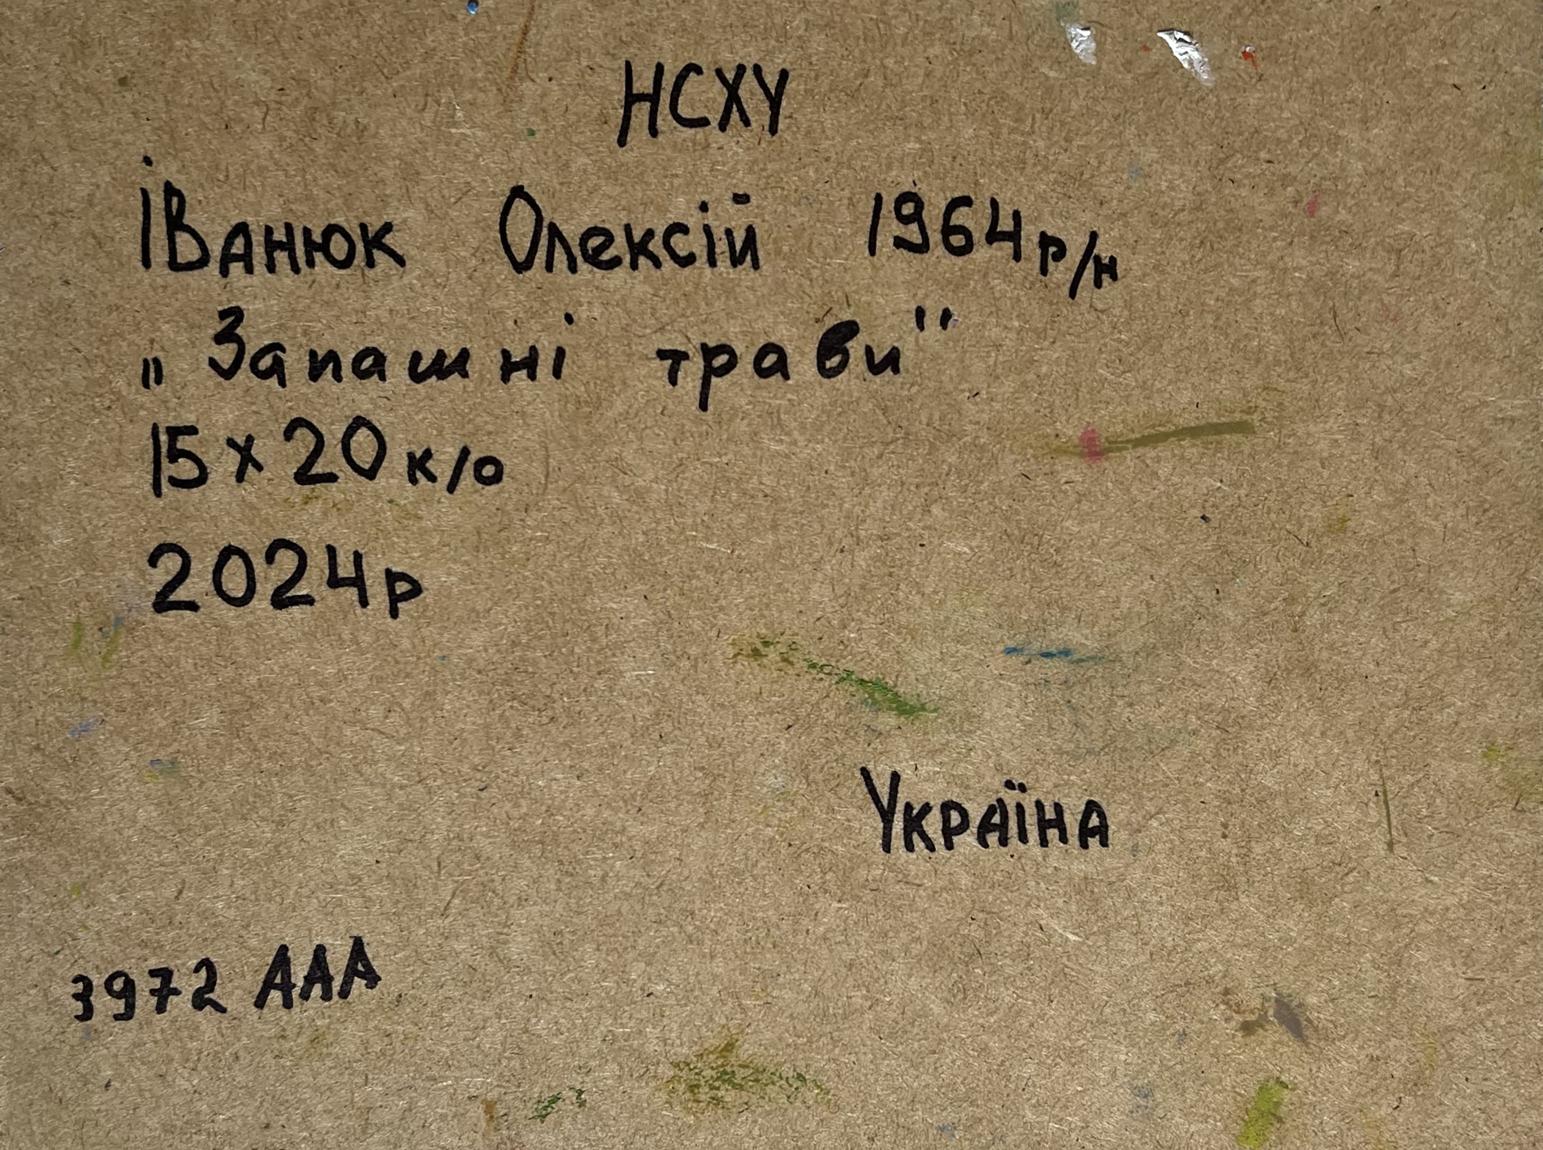 НСХУ
Іванюк Олексій 1964 р/н
„Запашні трави"
15х20 к/о
2024р
Україна
3972 ААА